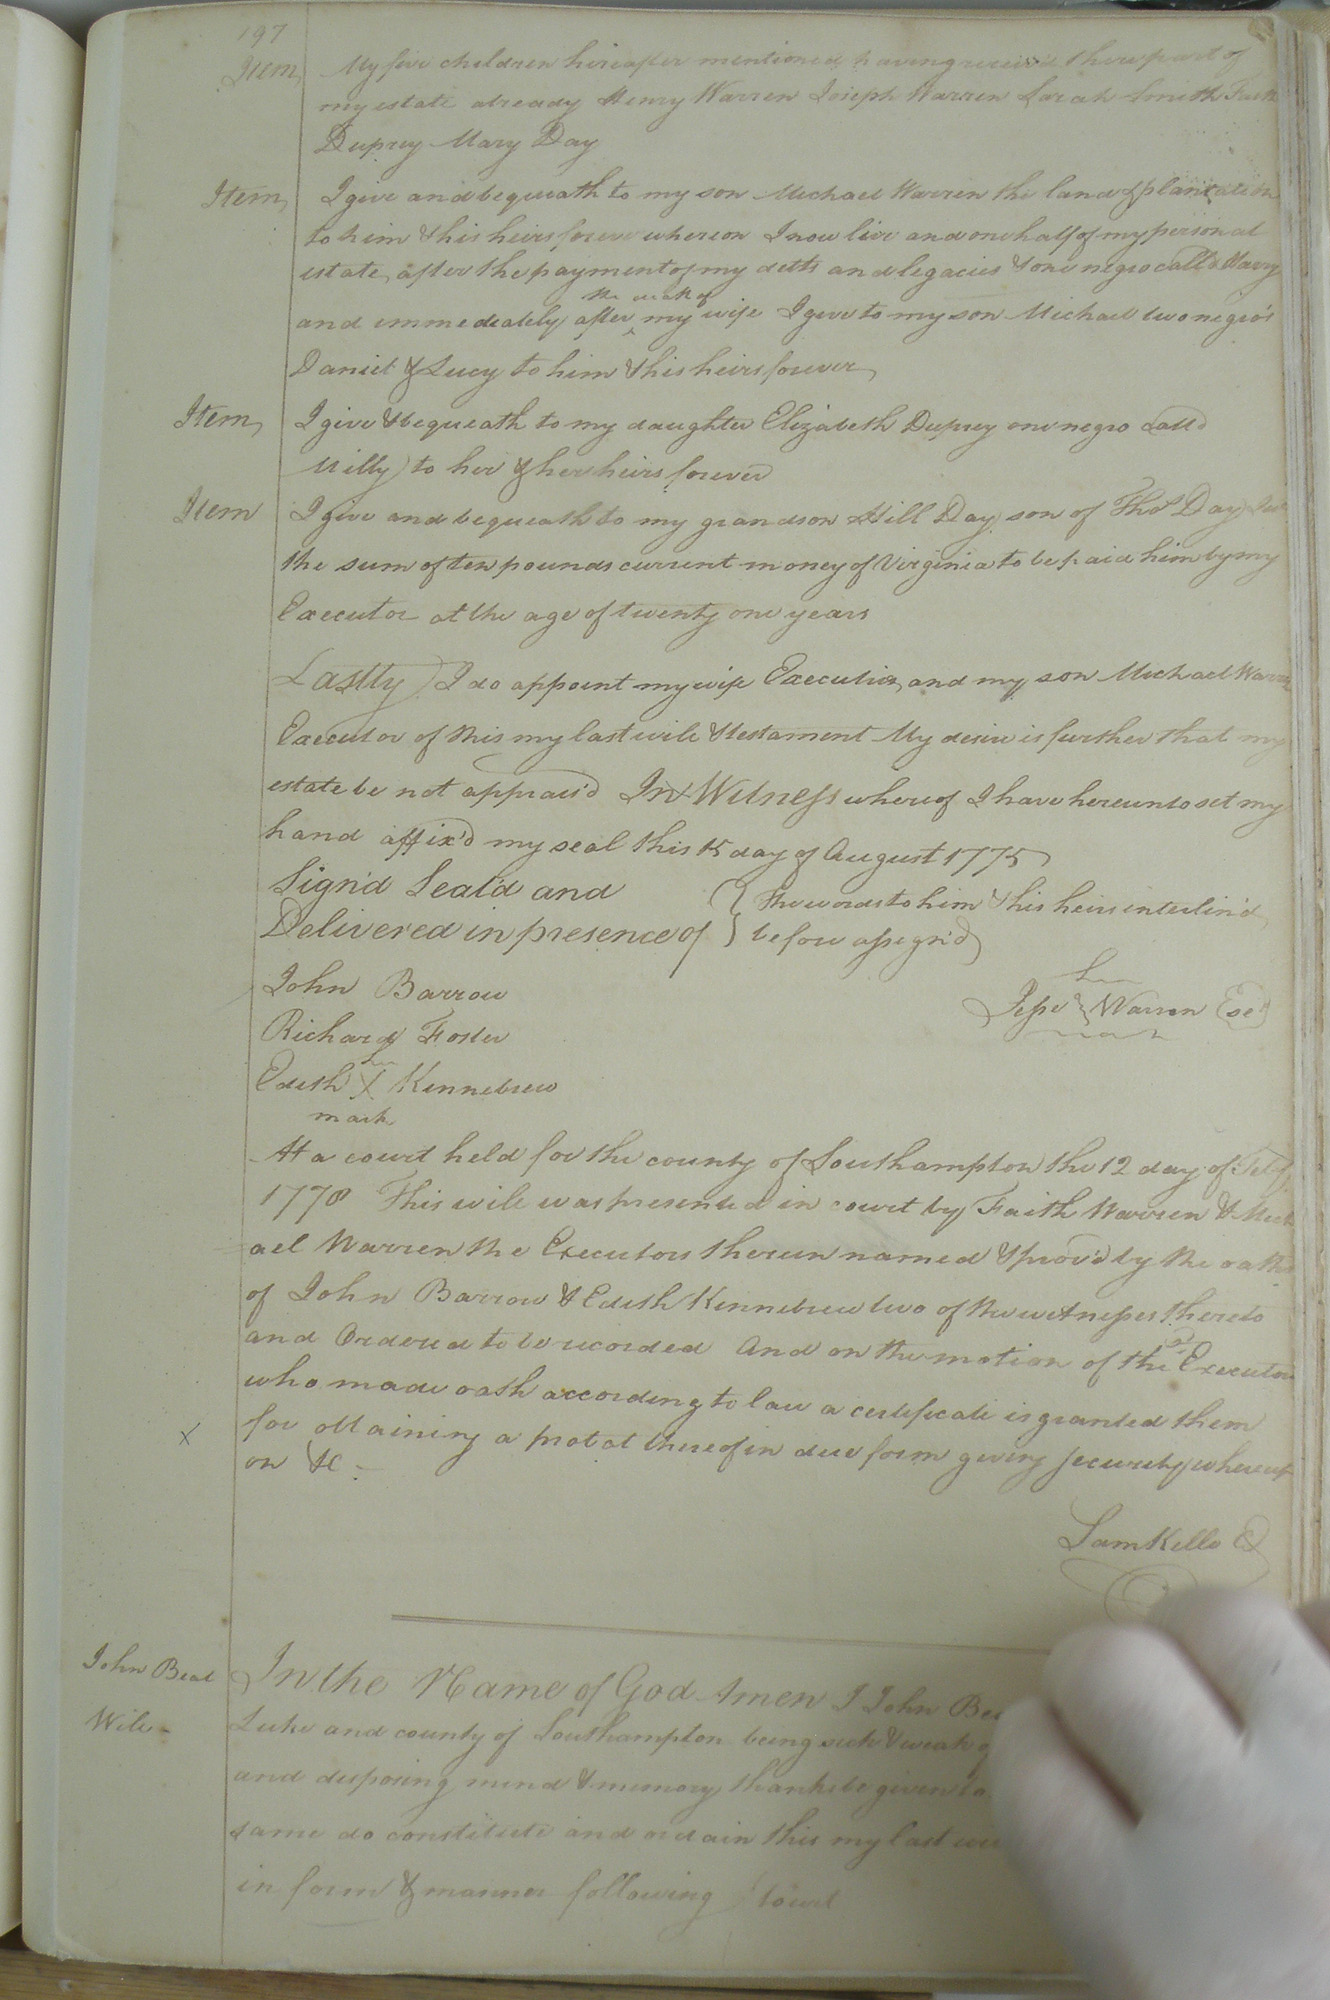 197
Item My five children hereafter mentioned having receiv'd there part of
my estate already Henry Warren Joseph Warren Sarah Smith Faith
Duprey Mary Day
Item I give and bequeath to my son Michael Warren the land & plantation
to him & his heirs forever whereon I now live and one half of my personal
estate after the payment of my detts and legacies & one negro call'd Harry
and immediately after the death of my wife I give to my son Michael two negro's
Daniel & Lucy to him & his heirs forever
Item I give & bequeath to my daughter Elizabeth Duprey one negro call'd
Milly to her & her heirs forever
Item I give and bequeath to my grandson Hill Day son of Thos Day
the sum of ten pounds current money of Virginia to be paid him by my
Executor at the age of twenty one years
Lastly I do appoint my wife Executrix and my son Michael Warren
Executor of this my last will & testament My desire is further that my
estate be not apprais'd In Witness whereof I have hereunto set my
hand affix'd my seal this 15 day of August 1775
Sign'd Seal'd and } the words to him & his heirs interlin'd
Delivered in presence of } before assign'd
John Barrow
his
Jesse } Warren Seal
Richard Foster
mark
his
Edith X Kennebrew
mark
At a court held for the county of Southampton the 12 day of
1778 This will was presented in court by Faith Warren & Mich
ael Warren the Executors therein named & prov'd by the oaths
of John Barrow & Edith Kennebrew two of the witnesses thereto
and Ordered to be recorded And on the motion of the sd Executors
who made oath according to law a certificate is granted them
for obtaining a probat thereof in due form giving security whereup
on &c
X
Sam Kello C
John Beal
Will
In the Name of God Amen I John
Luke and county of Southampton being sick & weak
and disposing mind & memory thanks be given to
same do constitute and ordain this my last
in form & manner following towit